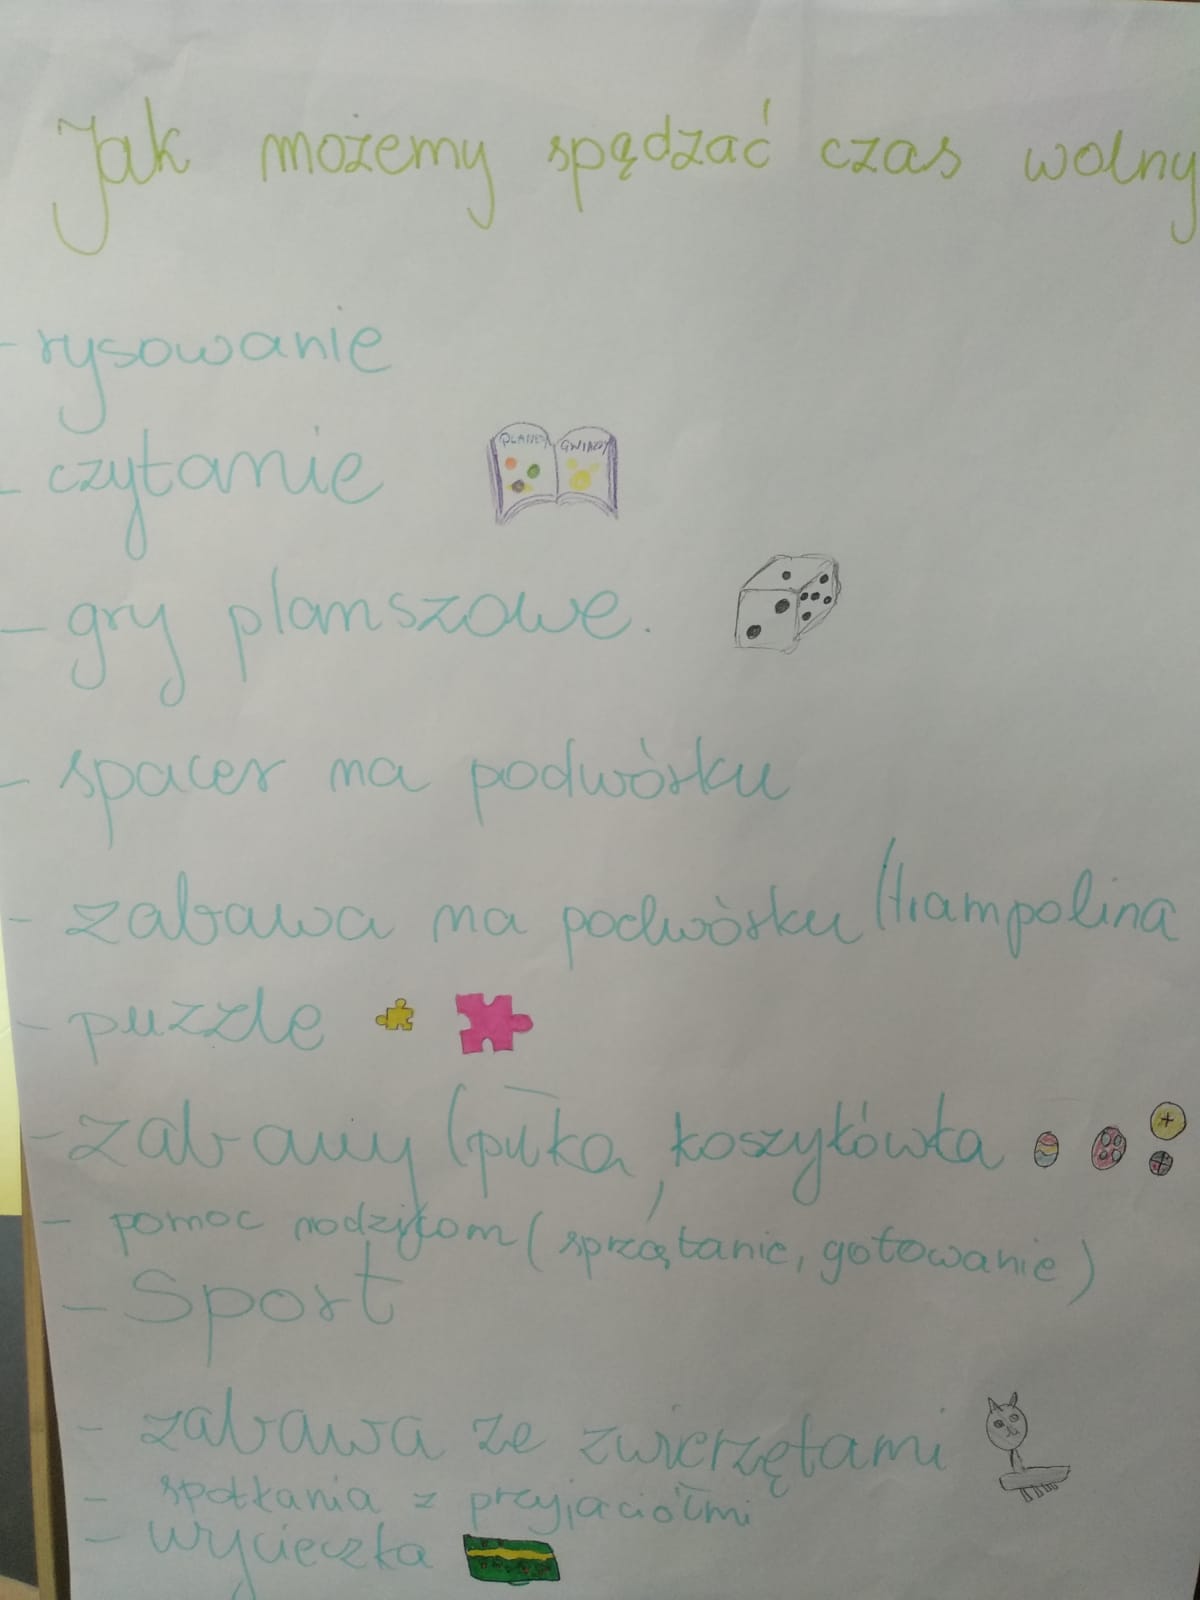 Jak możemy spędzać czas wolny
- rysowanie
- czytanie
PLANETY GWIAZDY
- gry planszowe.
- spacer na podwórku
- zabawa na podwórku (trampolina
- puzzle
- zabawy (piłka, koszyłówka
- pomoc rodzicom (sprzątanie, gotowanie)
- Sport
- zabawa ze zwierzętami
- spotkania z przyjaciółmi
- wycieczka